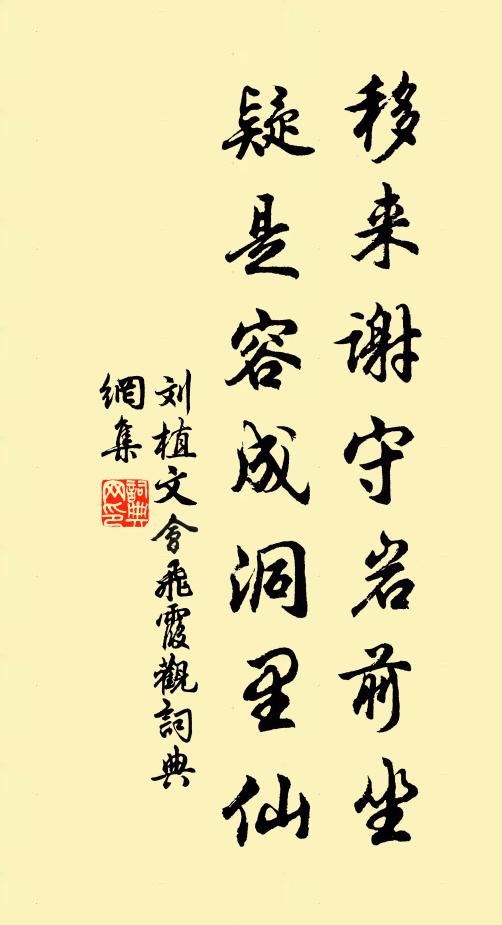 移来谢守岩前坐
疑是容成洞里仙
刘植文會飛霞觀詞典
網集
詞典
网印